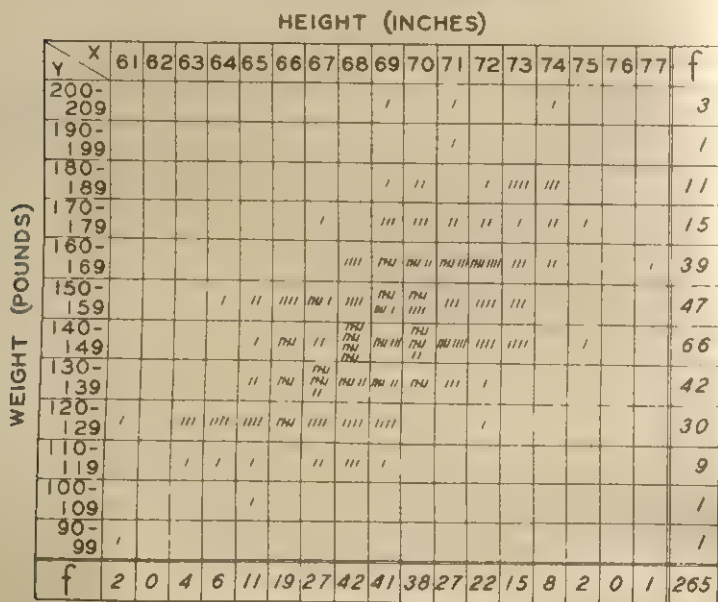 HEIGHT (INCHES)
Y X 61 62 63 64 65 66 67 68 69 70 71 72 73 74 75 76 77 f
200-209 / / / 3
190-199 / 1
180-189 / // / //// /// 11
170-179 / /// /// // // / // / 15
160-169 //// 39
150-159 / // //// 47
140-149 / 66
130-139 // 42
120-129 / /// //// //// 30
110-119 / / / // /// / 9
100-109 / 1
90-99 / 1
f 2 0 4 6 11 19 27 42 41 38 27 22 15 8 2 0 1 265
WEIGHT (POUNDS)